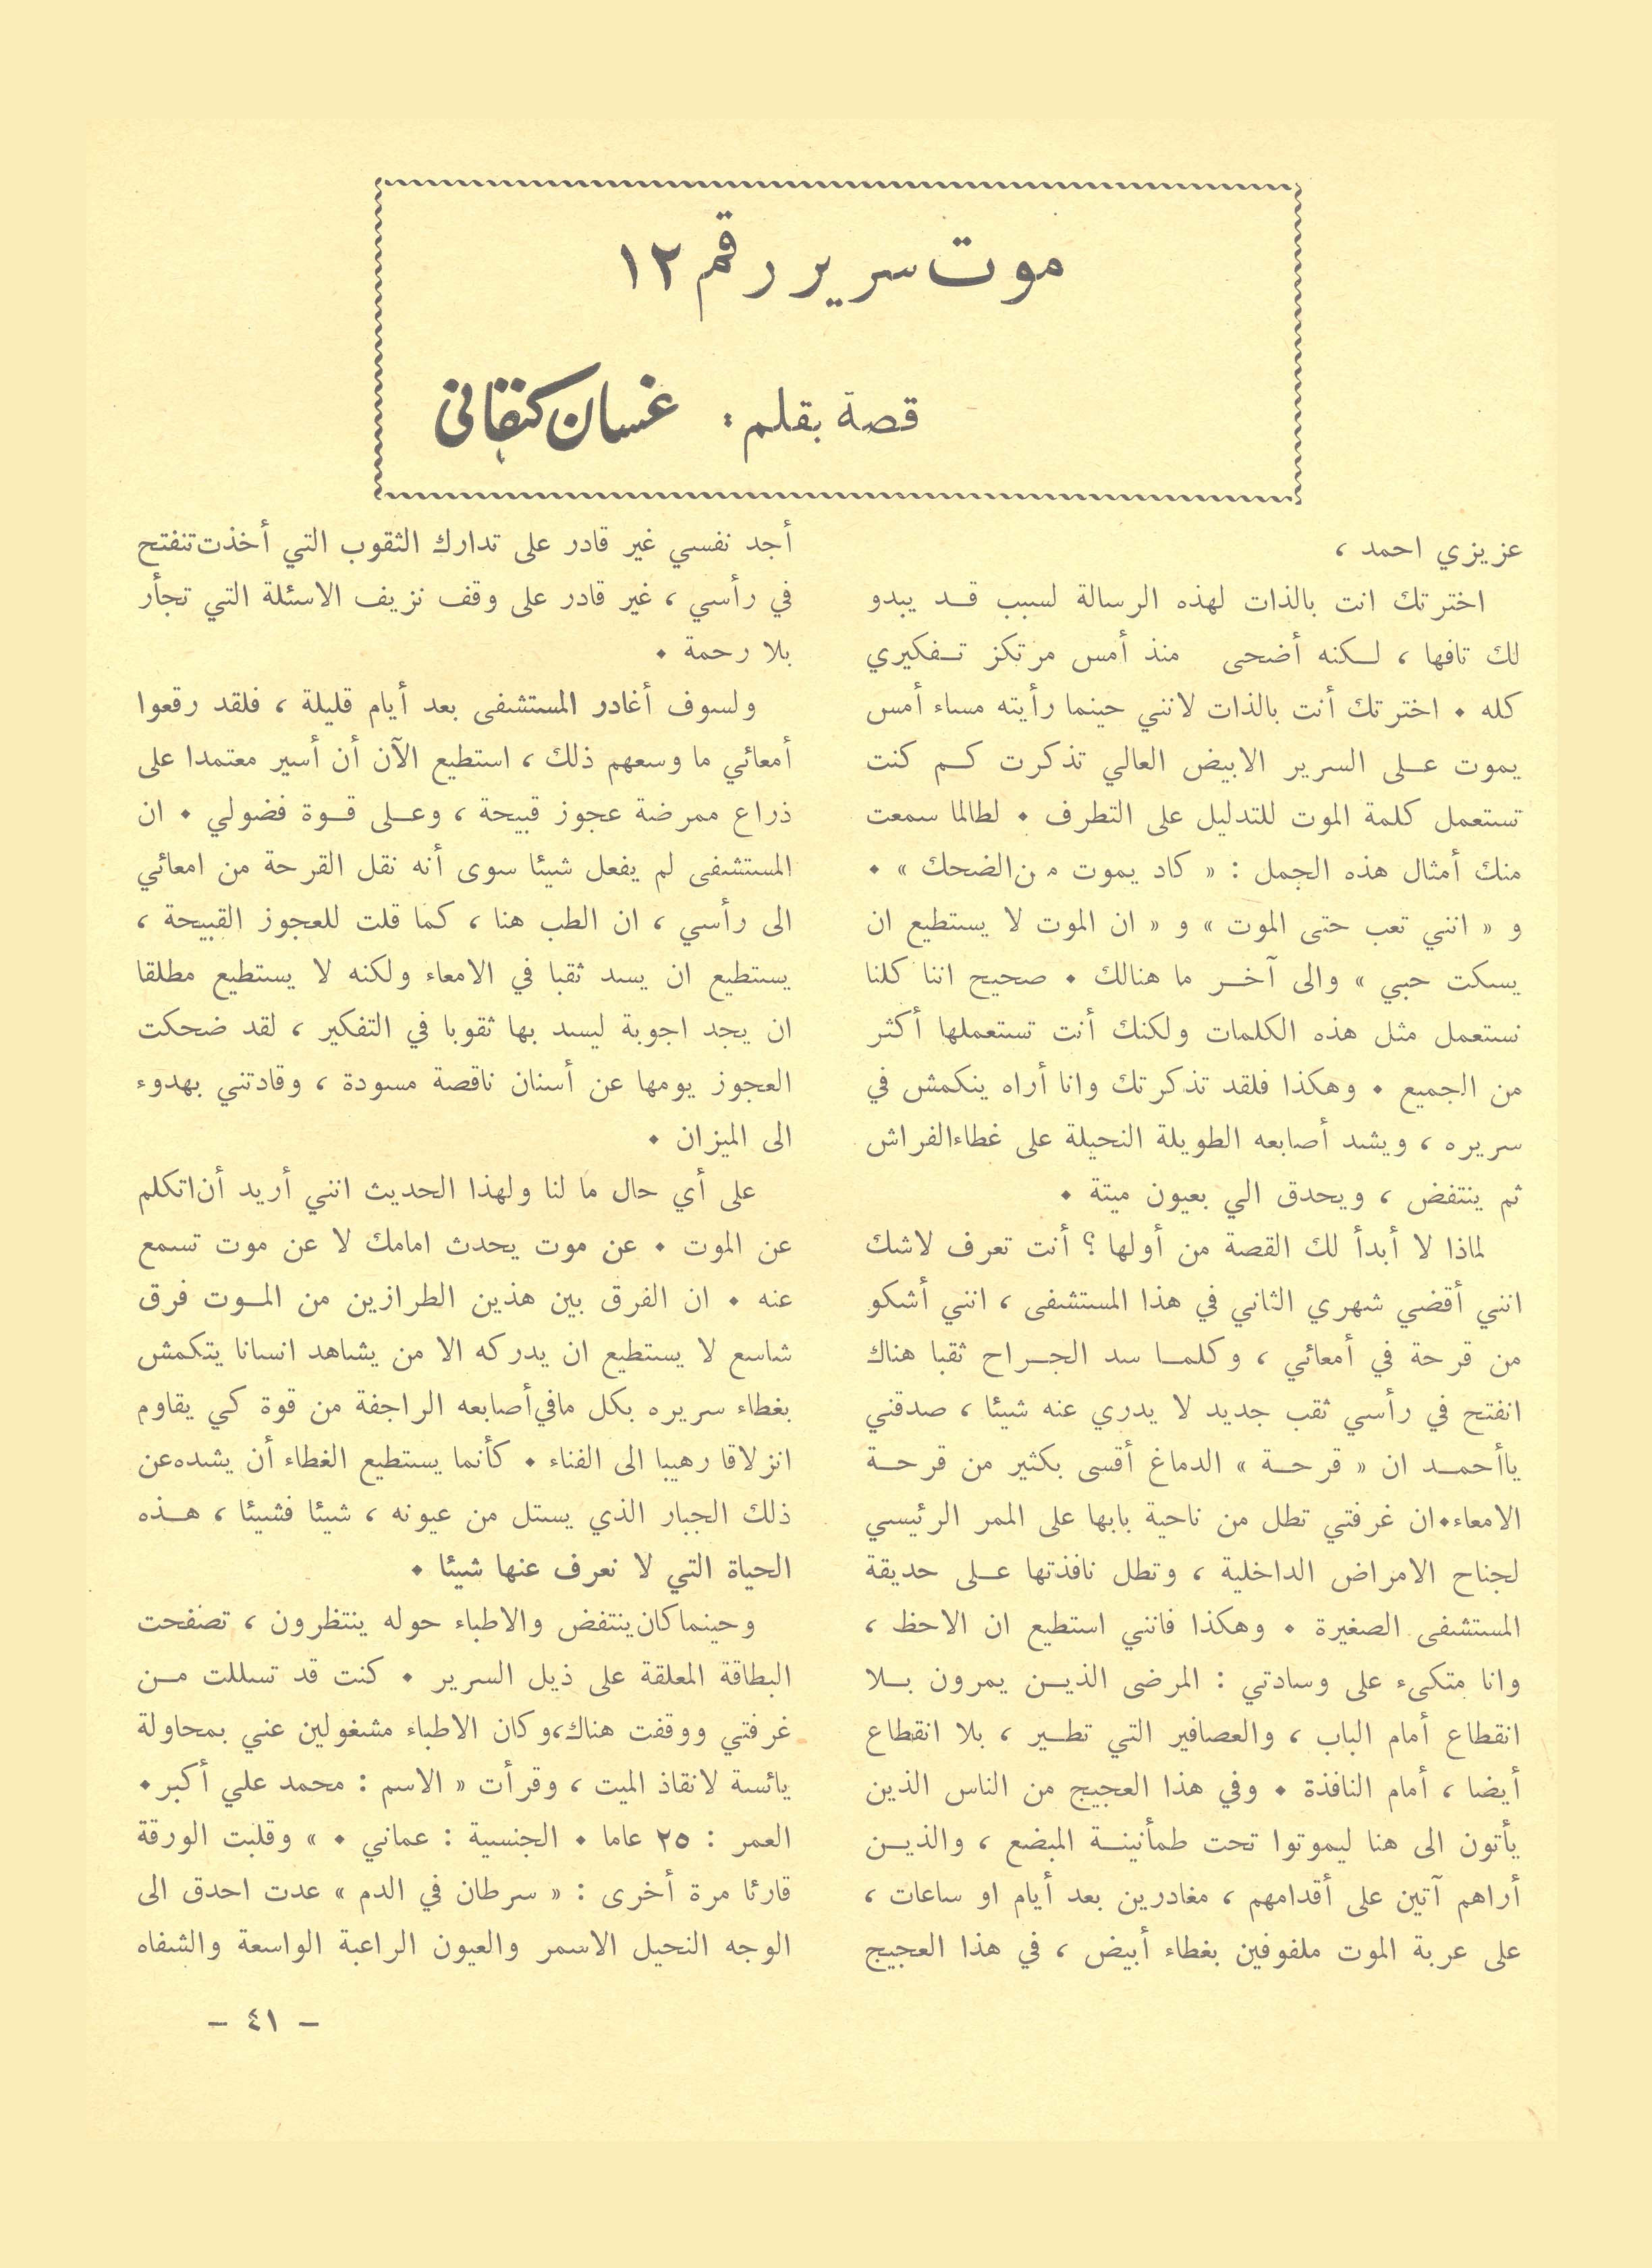 موت سرير رقم ١٢
قصة بقلم : غسان كنفاني
عزيزي احمد ،
اخترتك انت بالذات لهذه الرسالة لسبب قد يبدو
لك تافها ، لكنه أضحى منذ أمس مرتكز تفكيري
كله . اخترتك أنت بالذات لانني حينما رأيته مساء أمس
يموت على السرير الابيض العالي تذكرت كم كنت
تستعمل كلمة الموت للتدليل على التطرف . لطالما سمعت
منك أمثال هذه الجمل : « كاد يموت من الضحك » .
و « انني تعب حتى الموت » و « ان الموت لا يستطيع ان
يسكت حبي » والى آخر ما هنالك . صحيح اننا كلنا
نستعمل مثل هذه الكلمات ولكنك أنت تستعملها أكثر
من الجميع . وهكذا فلقد تذكرتك وانا أراه ينكمش في
سريره ، ويشد أصابعه الطويلة النحيلة على غطاء الفراش
ثم ينتفض ، ويحدق الي بعيون ميتة .
لماذا لا أبدأ لك القصة من أولها ؟ أنت تعرف لاشك
انني أقضي شهري الثاني في هذا المستشفى ، انني أشكو
من قرحة في أمعائي ، وكلما سد الجراح ثقبا هناك
انفتح في رأسي ثقب جديد لا يدري عنه شيئا ، صدقني
ياأحمد ان « قرحة » الدماغ أقسى بكثير من قرحة
الامعاء . ان غرفتي تطل من ناحية بابها على الممر الرئيسي
لجناح الامراض الداخلية ، وتطل نافذتها على حديقة
المستشفى الصغيرة . وهكذا فانني استطيع ان الاحظ ،
وانا متكىء على وسادتي : المرضى الذين يمرون بلا
انقطاع أمام الباب ، والعصافير التي تطير ، بلا انقطاع
أيضا ، أمام النافذة . وفي هذا العجيج من الناس الذين
يأتون الى هنا ليموتوا تحت طمأنينة المبضع ، والذين
أراهم آتين على أقدامهم ، مغادرين بعد أيام او ساعات ،
على عربة الموت ملفوفين بغطاء أبيض ، في هذا العجيج
أجد نفسي غير قادر على تدارك الثقوب التي أخذت تنفتح
في رأسي ، غير قادر على وقف نزيف الاسئلة التي تجأر
بلا رحمة .
ولسوف أغادر المستشفى بعد أيام قليلة ، فلقد رقعوا
أمعائي ما وسعهم ذلك ، استطيع الآن أن أسير معتمدا على
ذراع ممرضة عجوز قبيحة ، وعلى قوة فضولي . ان
المستشفى لم يفعل شيئا سوى أنه نقل القرحة من امعائي
الى رأسي ، ان الطب هنا ، كما قلت للعجوز القبيحة ،
يستطيع ان يسد ثقبا في الامعاء ولكنه لا يستطيع مطلقا
ان يجد اجوبة ليسد بها ثقوبا في التفكير ، لقد ضحكت
العجوز يومها عن أسنان ناقصة مسودة ، وقادتني بهدوء
الى الميزان .
على أي حال ما لنا ولهذا الحديث انني أريد أن اتكلم
عن الموت . عن موت يحدث امامك لا عن موت تسمع
عنه . ان الفرق بين هذين الطرازين من الموت فرق
شاسع لا يستطيع ان يدركه الا من يشاهد انسانا يتكمش
بغطاء سريره بكل مافي أصابعه الراجفة من قوة كي يقاوم
انزلاقا رهيبا الى الفناء . كأنما يستطيع الغطاء أن يشده عن
ذلك الجبار الذي يستل من عيونه ، شيئا فشيئا ، هذه
الحياة التي لا نعرف عنها شيئا .
وحينما كان ينتفض والاطباء حوله ينتظرون ، تصفحت
البطاقة المعلقة على ذيل السرير . كنت قد تسللت من
غرفتي ووقفت هناك ، وكان الاطباء مشغولين عني بمحاولة
يائسة لانقاذ الميت ، وقرأت « الاسم : محمد علي أكبر .
العمر : ٢٥ عاما . الجنسية : عماني . » وقلبت الورقة
قارئا مرة أخرى : « سرطان في الدم » عدت احدق الى
الوجه النحيل الاسمر والعيون الراعبة الواسعة والشفاه
- ٤١ -